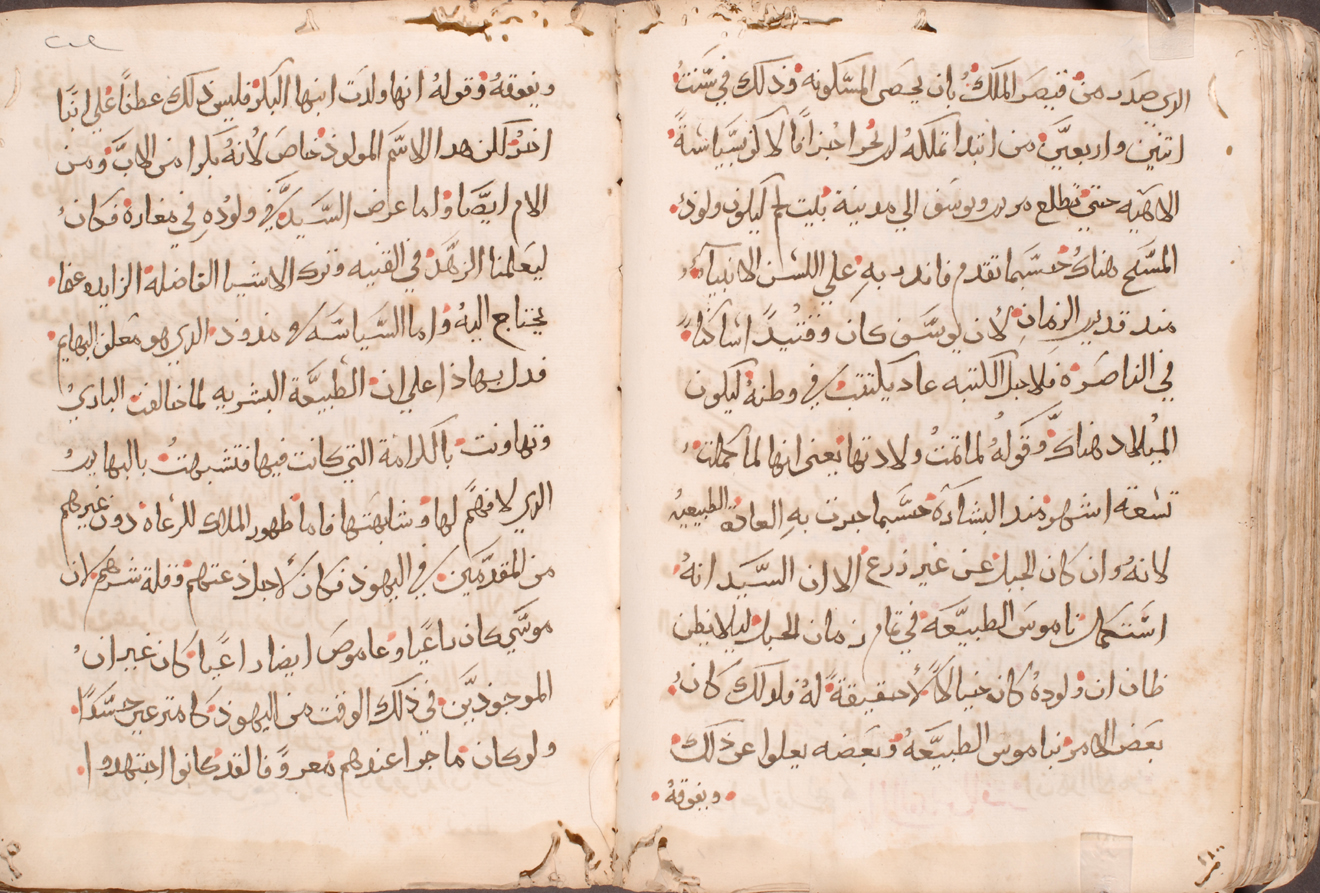 الدي صدر من قيصر الملك بان يحصى المسكونه وذلك في سنة
اتنين واربعين من ابتدا تملكه لم يجرا جزافا لاكن بسياسة
الاهيه حتي تطلع مريم ويوسف الي مدينة بيت لحم ليكون ولود
المسيح هناك حسبما تقدم فاندر به علي السن الانبيآء
مند قديم الزمان لان يوسف كان وقتيدا ساكنا
في الناصره فلاجل الكتبه عاد يكتتب في وطنه ليكون
الميلاد هناك وقوله لما تمت ولادتها يعني انها لما كملت
تسعة اشهر مند البشارة حسبما جرت به العادة الطبيعيه
لانه وان كان الحبل من غير زرع الا ان السيد انه
استكمل ناموس الطبيعه في تمام زمان الحبل ليلا يظن
ظان ان ولوده كان خيالا لا حقيقة له فلدلك كان
بعض الامر بناموس الطبيعه وبعضه يعلوا عن ذلك
ويفوقه
ويفوقه وقوله انها ولدت ابنها البكر فليس ذلك عطفا علي ابنا
اخر لكن هدا الاسم المولود خاص لانه بكرا من الاب ومن
الام ايضا واما غرض السيد في ولوده في مغارة فكان
ليعلمنا الزهد في القنيه وترك الاشيا الفاضلة الزايده عما
يحتاج اليه واما السياسه في مدود الدي هو معلف البهايم
فدل بهاذا علي ان الطبيعة البشريه لما خالفت الباري
وتهاونت بالكرامة التي كانت فيها فتشبهت بالبهايم
الدي لا فهم لها وشابهتها فاما ظهور الملاك للرعاه دون غيرهم
من المقدمين في اليهود فكان لاجل دعتهم وقلة شرهم لان
موسي كان راعيا وعاموص ايضا راعيا كان غير ان
الموجودين في ذلك الوقت من اليهود كا مترعين حسدا
ولو كان ما جرا عندهم معروفا لقد كانوا اجتهدوا